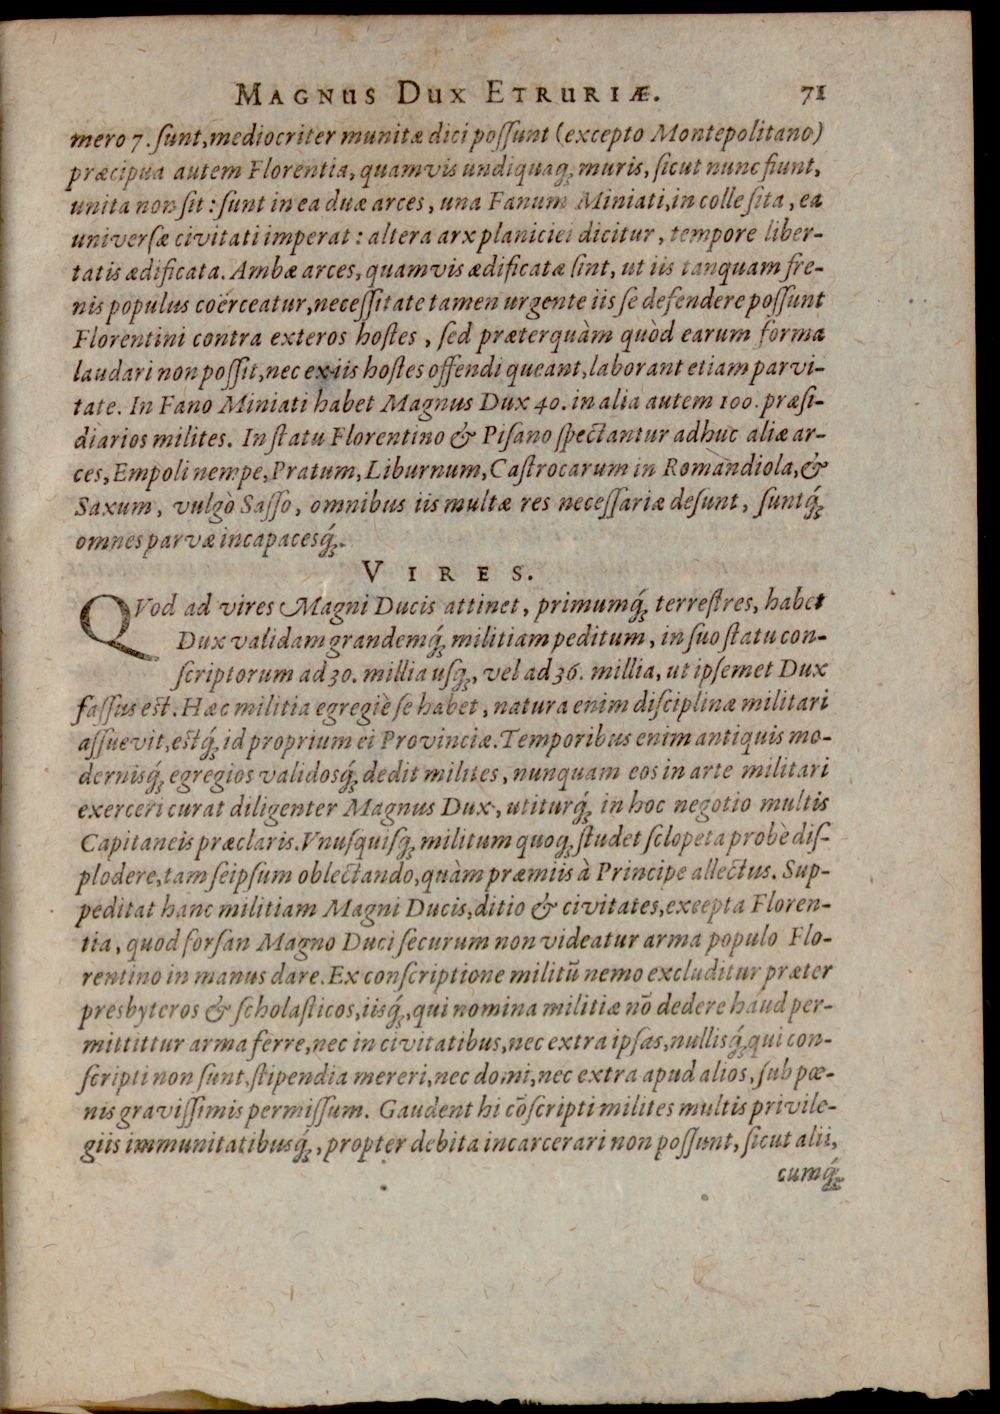 MAGNUS DUX ETRURIÆ. 71
mero 7. ſunt, mediocriter munitæ dici poſſunt (excepto Montepolitano)
præcipua autem Florentia, quamvis undiquaq;, muris, ſicut nunc fiunt,
unita non ſit: ſunt in ea duæ arces, una Fanum Miniati, in colle ſita, ea
univerſæ civitati imperat: altera arx planiciei dicitur, tempore liber-
tatis ædificata. Ambæ arces, quamvis ædificatæ ſint, ut iis tanquam fre-
nis populus coërceatur, neceſſitate tamen urgente iis ſe defendere poſſunt
Florentini contra exteros hoſtes, ſed præterquàm quòd earum forma
laudari non poſſit, nec ex iis hoſtes offendi queant, laborant etiam parvi-
tate. In Fano Miniati habet Magnus Dux 40. in alia autem 100. præſi-
diarios milites. In ſtatu Florentino & Piſano ſpectantur adhuc aliæ ar-
ces, Empoli nempe, Pratum, Liburnum, Caſtrocarum in Romandiola, &
Saxum, vulgò Saſſo, omnibus iis multæ res neceſſariæ deſunt, ſuntq́;
omnes parvæ incapacesq́;.
VIRES.
QVod ad vires Magni Ducis attinet, primumq́; terreſtres, habet
Dux validam grandemq́; militiam peditum, in ſuo ſtatu con-
ſcriptorum ad 30. millia uſq;, vel ad 36. millia, ut ipſemet Dux
faſſus eſt. Hæc militia egregiè ſe habet, natura enim diſciplinæ militari
aſſuevit, eſtq́; id proprium ei Provinciæ. Temporibus enim antiquis mo-
dernisq́; egregios validosq́; dedit milites, nunquam eos in arte militari
exerceri curat diligenter Magnus Dux, utiturq́; in hoc negotio multis
Capitaneis præclaris. Vnuſquiſq; militum quoq; ſtudet ſclopeta probè diſ-
plodere, tam ſeipſum oblectando, quàm præmiis à Principe allectus. Sup-
peditat hanc militiam Magni Ducis, ditio & civitates, excepta Floren-
tia, quod forſan Magno Duci ſecurum non videatur arma populo Flo-
rentino in manus dare. Ex conſcriptione militū nemo excluditur præter
presbyteros & ſcholaſticos, iisq́;, qui nomina militiæ nō dedere haud per-
mittittur arma ferre, nec in civitatibus, nec extra ipſas, nullisq́; qui con-
ſcripti non ſunt, ſtipendia mereri, nec domi, nec extra apud alios, ſub pœ-
nis graviſſimis permiſſum. Gaudent hi cōſcripti milites multis privile-
giis immunitatibusq́;, propter debita incarcerari non poſſunt, ſicut alii,
cumq́;